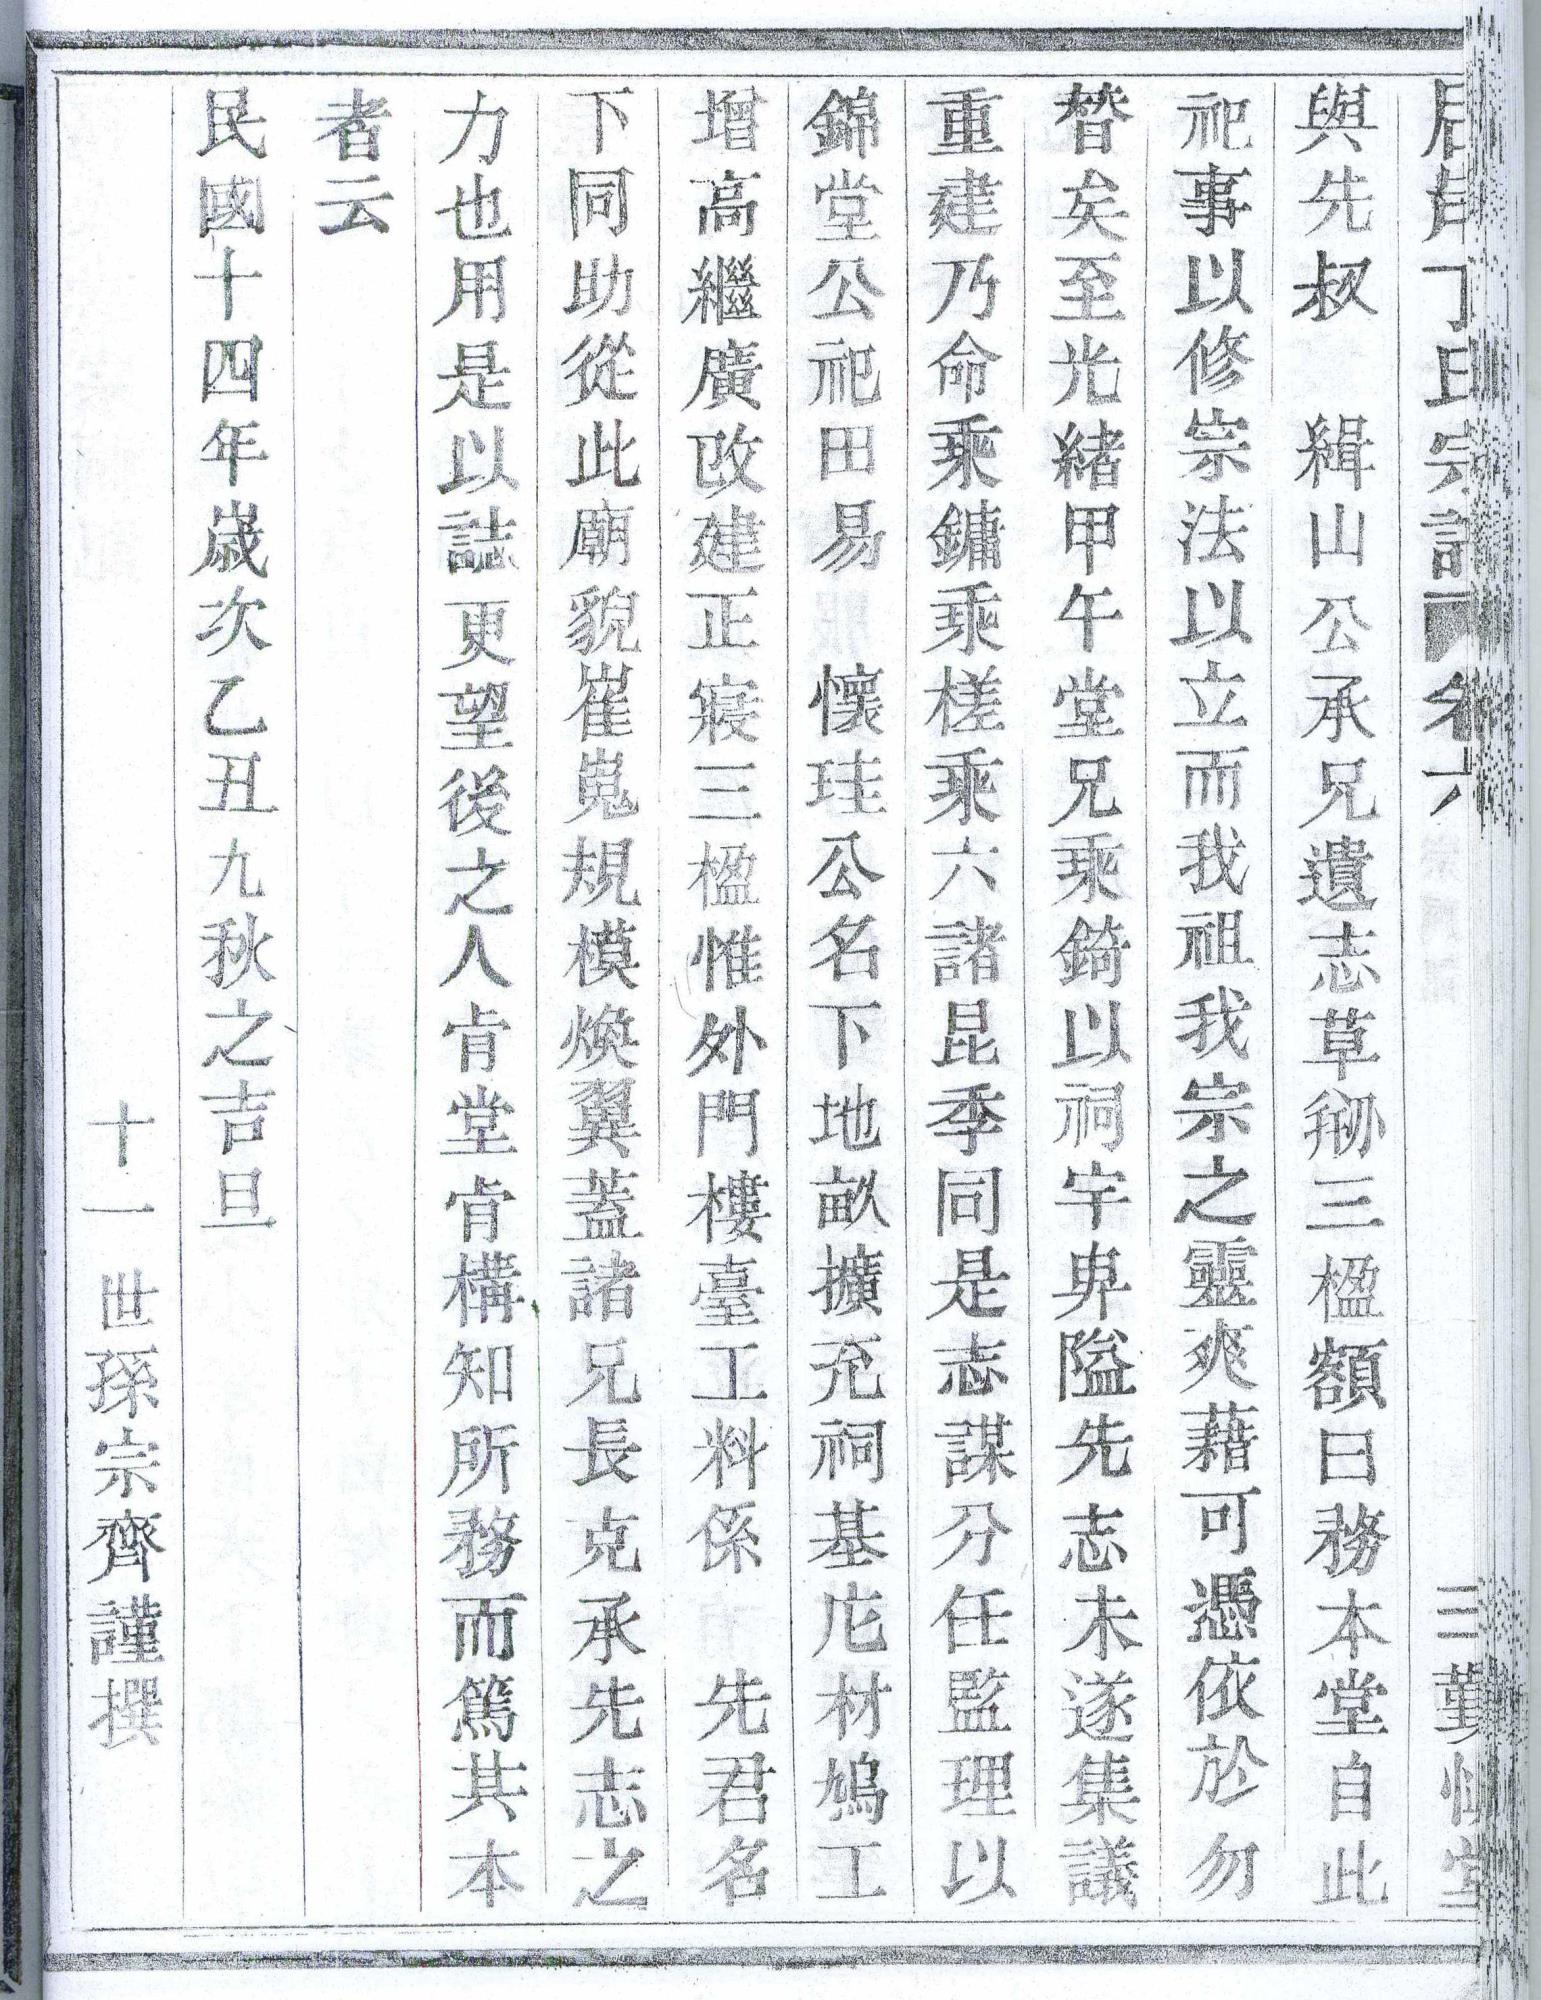 丁氏宗譜 卷
三 勤慎堂
與先叔 緝山公承兄遺志草刱三楹額曰務本堂自此
祀事以修宗法以立而我祖我宗之靈爽藉可憑依於勿
替矣至光緒甲午堂兄乘錡以祠宇卑隘先志未遂集議
重建乃命乘鏞乘槎乘六諸昆季同是志謀分任監理以
錦堂公祀田易 懷珪公名下地畝擴充祠基庀材鳩工
增高繼廣改建正寢三楹惟外門樓臺工料係 先君名
下同助從此廟貌崔嵬規模煥翼蓋諸兄長克承先志之
力也用是以誌更望後之人肯堂肯構知所務而篤其本
者云
民國十四年歲次乙丑九秋之吉旦
十一世孫宗齊謹撰